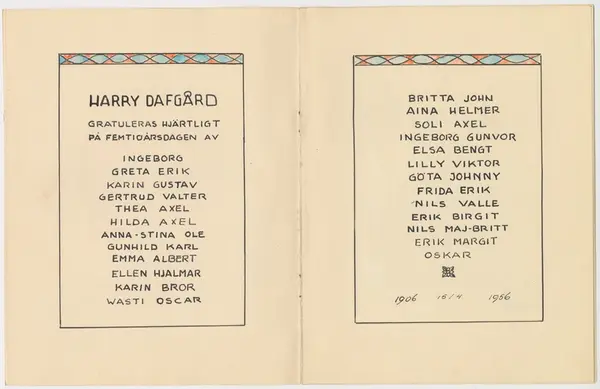 HARRY DAFGÅRD
GRATULERAS HJÄRTLIGT
PÅ FEMTIOÅRSDAGEN AV
INGEBORG
GRETA ERIK
KARIN GUSTAV
GERTRUD VALTER
THEA AXEL
HILDA AXEL
ANNA-STINA OLE
GUNHILD KARL
EMMA ALBERT
ELLEN HJALMAR
KARIN BROR
WASTI OSCAR
BRITTA JOHN
AINA HELMER
SOLI AXEL
INGEBORG GUNVOR
ELSA BENGT
LILLY VIKTOR
GÖTA JOHNNY
FRIDA ERIK
NILS VALLE
ERIK BIRGIT
NILS MAJ-BRITT
ERIK MARGIT
OSKAR
1906 15/4 1956